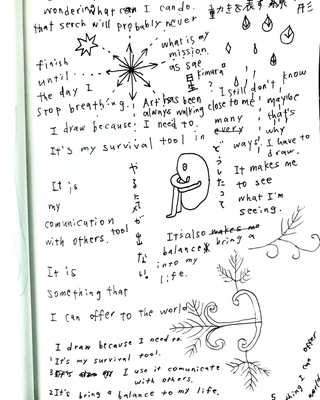 wondering what can I can do.
that serch will probably never
finish
until
the day I
stop breathing.
what is my
mission
as sae
kimura
?
Art has been
always walking close to me
I draw because I need to.
It's my survival tool in
many
every
ways
I still don't know
maybe
that's
why
I have to
draw.
It makes me
to see
what I'm
seeing.
It is
my
comunication tool
with others.
どうしたって
It's also make me
balance bring a
into my
life.
It is
something that
I can offer to the world
I draw because I need to.
1 It's my survival tool.
3 I use it comunicate
with others.
2 It's bring a balance to my life.